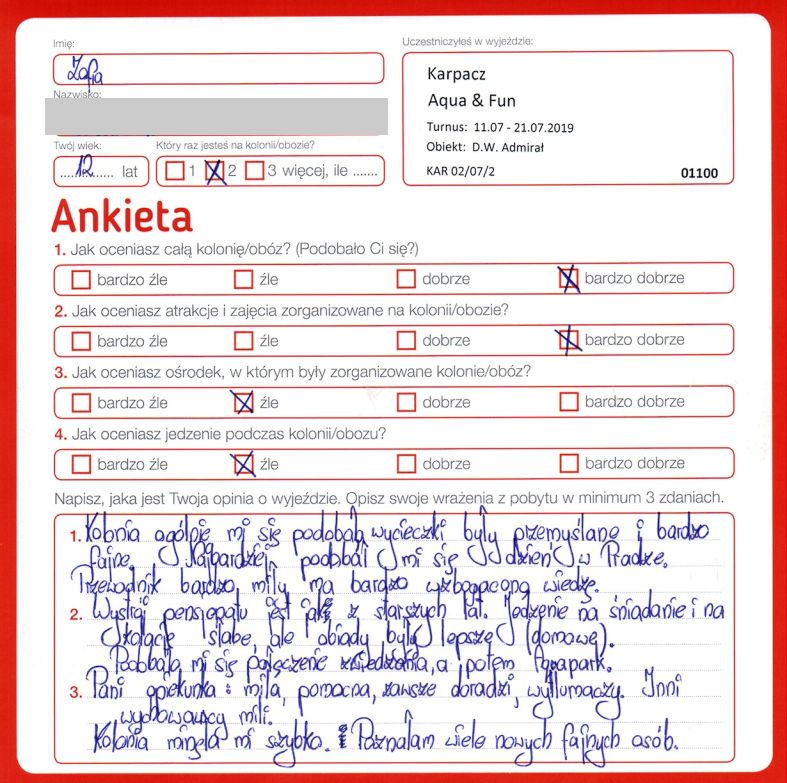 Imię:
Zofia
Nazwisko:
Twój wiek:
12 lat
Który raz jesteś na kolonii/obozie?
1 2 3 więcej, ile .......
Uczestniczyłeś w wyjeździe:
Karpacz
Aqua & Fun
Turnus: 11.07 - 21.07.2019
Obiekt: D.W. Admirał
KAR 02/07/2 01100
Ankieta
1. Jak oceniasz całą kolonię/obóz? (Podobało Ci się?)
bardzo źle źle dobrze bardzo dobrze
2. Jak oceniasz atrakcje i zajęcia zorganizowane na kolonii/obozie?
bardzo źle źle dobrze bardzo dobrze
3. Jak oceniasz ośrodek, w którym były zorganizowane kolonie/obóz?
bardzo źle źle dobrze bardzo dobrze
4. Jak oceniasz jedzenie podczas kolonii/obozu?
bardzo źle źle dobrze bardzo dobrze
Napisz, jaka jest Twoja opinia o wyjeździe. Opisz swoje wrażenia z pobytu w minimum 3 zdaniach.
1. Kolonia ogólnie mi się podobała, wycieczki były przemyślane i bardzo
fajne. Najbardziej podobał mi się dzień w Pradze.
Przewodnik bardzo miły ma bardzo wzbogaconą wiedzę.
2. Wystrój pensjonatu jest jak z starszych lat. Jedzenie na śniadanie i na
kolację słabe, ale obiady były lepsze (domowe).
Podobało mi się połączenie zwiedzania, a potem Aquapark.
3. Pani opiekunka: miła, pomocna, zawsze doradzi, wytłumaczy. Inni
wychowawcy mili.
Kolonia minęła mi szybko. Poznałam wiele nowych fajnych osób.